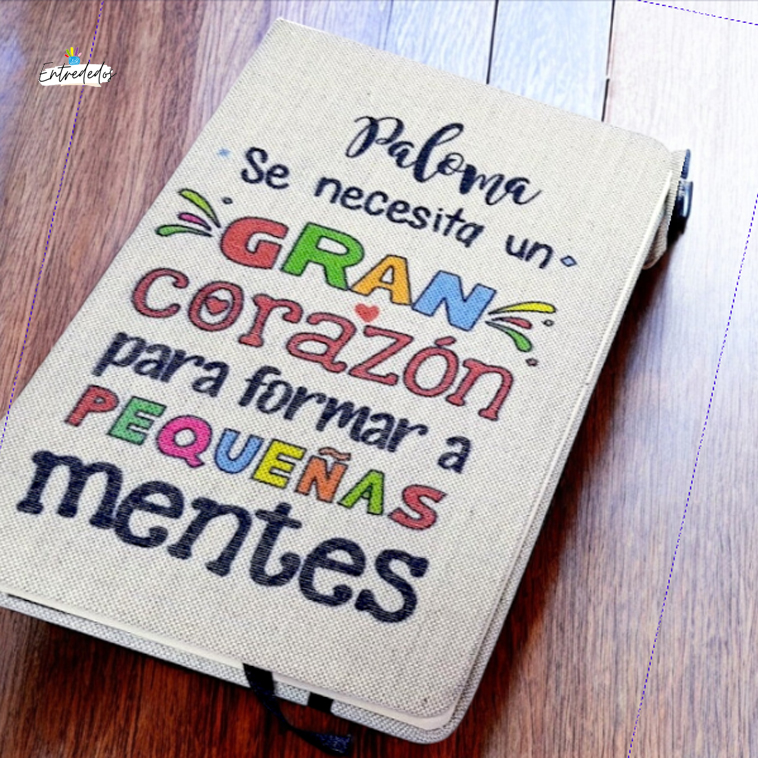 Entrededos
Paloma
Se necesita un
GRAN
corazón
para formar a
PEQUEÑAS
mentes